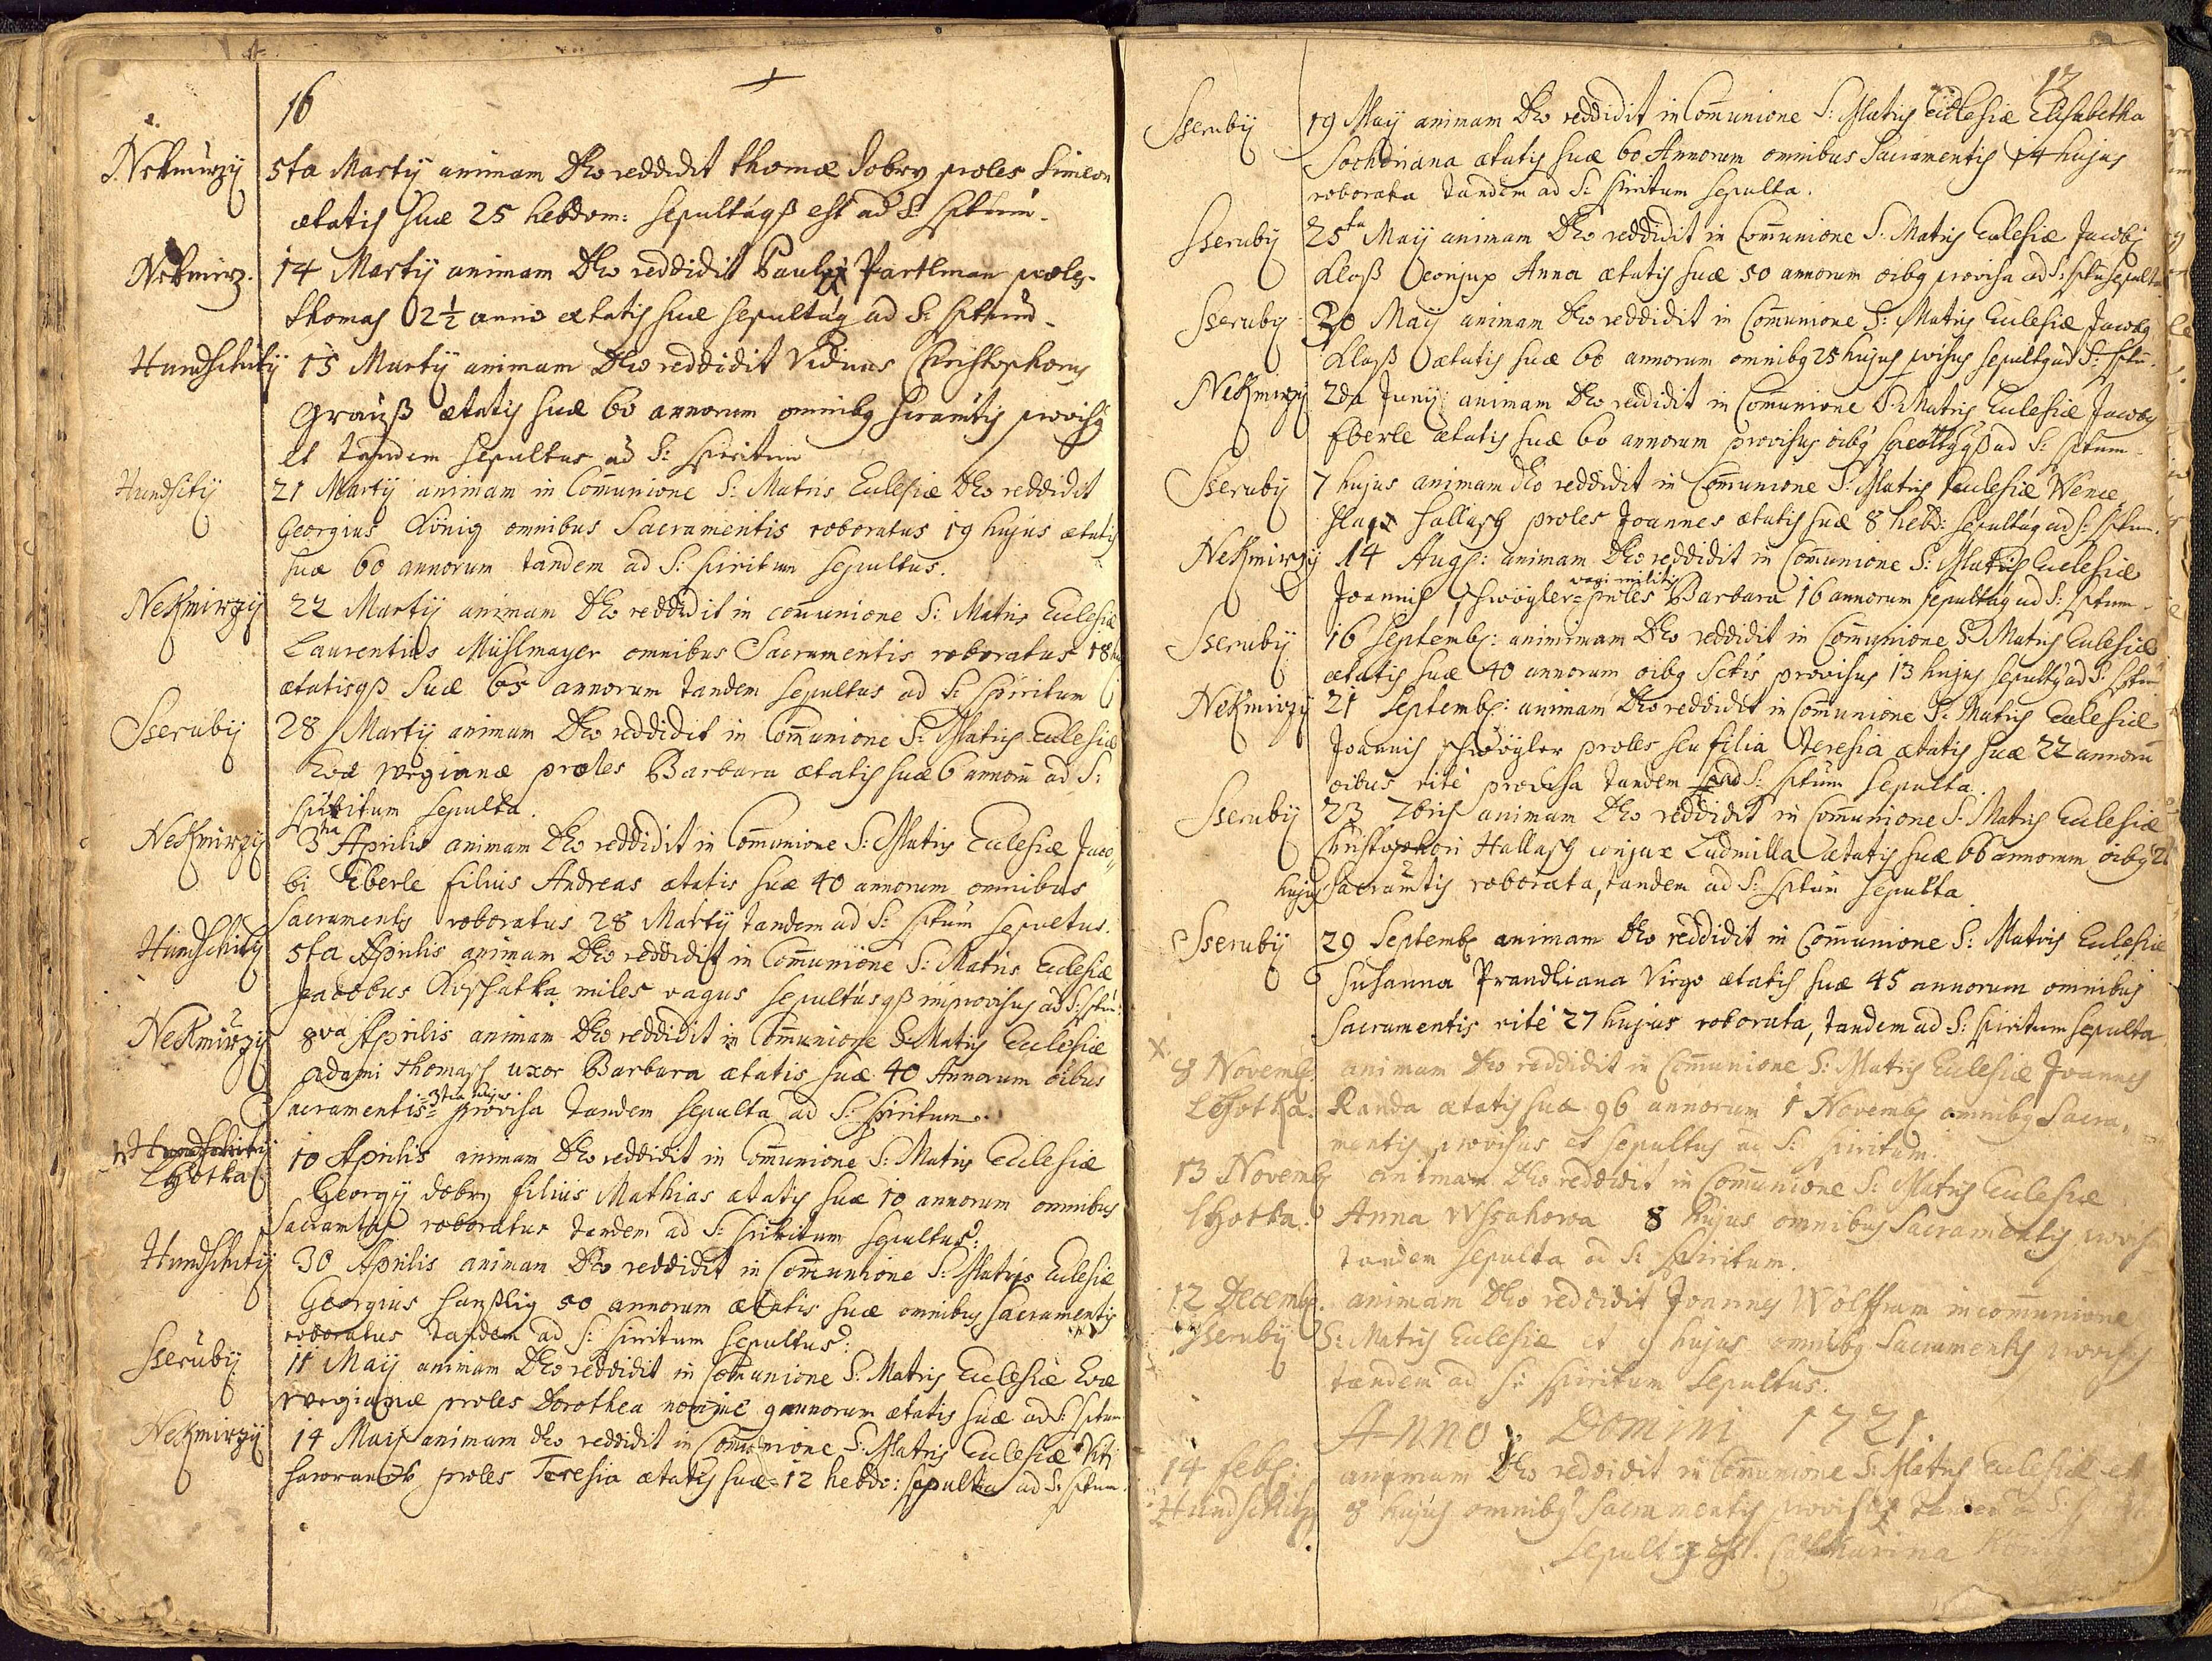 16
Nekmirzÿ 5ta Martÿ animam Deo reddidit Thomæ Dobrÿ proles Simeon
ætatis suæ 25 hebdom: sepultusqȝ est ad S: Sptum.
Nekmirz. 14 Martÿ animam Deo reddidit Pauli Partlman proles
Thomas 2½ anno ætatis suæ sepultus ad S: Sptum
Hundschitÿ 15 Martÿ animam Deo reddidit Viduus Christophorus
Grauß ætatis suæ 60 annorum omnibq Sacramtis provisq
et tandem sepultus ad S: Spiritum
Hundsitÿ 21 Martÿ animam in Co[mm]unione S: Matris Eclesiæ Deo reddidit
Georgius König omnibus Sacramentis roboratus 19 hujus ætatis
suæ 60 annorum tandem ad S: Spiritum sepultus.
Nekmirzÿ 22 Martÿ animam Deo reddidit in comunione S: Matris Eclesiæ
Laurentius Mühlmayer omnibus Sacramentis roboratus 18 hu
ætatisqȝ suæ 65 annorum tandem sepultus ad S: Spiritum
Sserubÿ 28 Martÿ animam Deo reddidit in Comunione S: Matris Eclesiæ
Evæ Wegianæ proles Barbara ætatis suæ 6 annorū ad S:
Spiritum sepulta.
Nekmirzÿ 3tia Aprilis animam Deo reddidit in Comunione S: Matris Eclesiæ Jaco„
bi Eberle filius Andreas ætatis suæ 40 annorum omnibus
Sacramentis roboratus 28 Martÿ tandem ad S: Sptum sepultus.
Hundschitÿ 5ta Aprilis animam Deo reddidit in Comunione S: Matris Eclesiæ
Jacobus Kossatka miles vagus sepultusqȝ improvisus ad S: Sptū:
Nekmirzÿ 8va Aprilis animam Deo reddidit in Comunione S: Matris Eclesiæ
Adami Thomasch uxor Barbara ætatis suæ 40 Annorum oibus
Sacramentis =3tia hujus= provisa tandem sepulta ad S: Spiritum.
Hundschitÿ
Lhotka 10 Aprilis animam Deo reddidit in Comunione S: Matris Eclesiæ
Georgÿ Dobrÿ filius Mathias ætatis suæ 10 annorum omnibus
Sacramtis roboratus tandem ad S: Spiritum sepultus:
Hundschitÿ 30 Aprilis animam Deo reddidit in Comunione S: Matris Eclesiæ
Georgius Hanßlig 50 annorum ætatis suæ omnibus Sacramentis
roboratus tandem ad S: Spiritum sepultus:
Sserubÿ 11 Maij animam Deo reddidit in Comunione S: Matris Eclesiæ Evæ
Wegianæ proles Dorothea nomine 9 annorum ætatis suæ ad S: Sptum
Nekmirzÿ 14 Maij animam Deo reddidit in Comunione S: Matris Eclesiæ Viti
proles Teresia ætatis suæ 12 hebdo: sepulta ad S: Sptum.
17
Sserubÿ 19 Maij animam Deo reddidit in Comunione S: Matris Eclesiæ Elisabetha
Sochoriana ætatis suæ 60 Annorum omnibus Sacramentis 14 hujus
roborata tandem ad S: Spiritum sepulta.
Sserubÿ 25ta Maij animam Deo reddidit in Comunione S: Matris Eclesiæ Jacobi
Kloß conjux Anna ætatis suæ 50 annorum oibq provisa ad S: Sptū sepulta
Sserubÿ 30 Maij animam Deo reddidit in Comunione S: Matris Eclesiæ Jacobq
Kloß ætatis suæ 60 annorum omnibq 25 hujus pvisus sepultq ad S: Sptū.
Nekmirzÿ 2da Junÿ animam Deo reddidit in Comunione S: Matris Eclesiæ Jacobq
Eberle ætatis suæ 60 annorum provisus oibq ad S: Sptum
Sserubÿ 7 hujus animam Deo reddidit in Comunione S: Matris Eclesiæ Wence
slai Hallasch proles Joannes ætatis suæ 8 hebd: sepultus ad S: Sptum.
Nekmirzÿ 14 Augs: animam Deo reddidit in Comunione S: Matris Eclesiæ
vagi militis
Joannis Schwögler proles Barbara 16 annorum sepulta ad S: Sptum
Sserubÿ 16 Septembs: animimam Deo reddidit in Comunione S: Matris Eclesiæ
ætatis suæ 40 annorum oibq Sctis provisus 13 hujus sepultq ad S: Sptū
Nekmirzÿ 21 Septembs: animam Deo reddidit in Comunione S: Matris Eclesiæ
Joannis Schwögler proles seu filia Teresia ætatis suæ 22 annorū
oibus rite provisa tandem ad S: Sptum sepulta.
Sserubÿ 23 7bris animam Deo reddidit in Comunione S: Matris Eclesiæ
Christophori Hallasch conjux Ludmilla ætatis suæ 66 annorum oibq 21
hujus Sacramtis roborata, tandem ad S: Sptum sepulta
Sserubÿ 29 Septembs animam Deo reddidit in Comunione S: Matris Eclesiæ
Susanna Prandliana Virgo ætatis suæ 45 annorum omnibus
Sacramentis rite 27 hujus roborata, tandem ad S: Spiritum sepulta
8 Novembs: animam Deo reddidit in Comunione S: Matris Eclesiæ Joannes
Lhotka. Randa ætatis suæ 96 annorum 1 Novembs omnibq Sacra„
mentis provisus et sepultus ad S: Spiritum.
13 Novembs animam Deo reddidit in Comunione S: Matris Eclesiæ
Lhotka. Anna Wssakowa 8 hujus omnibus Sacramentis provisa
tandem sepulta ad S: Spiritum.
12 Decembs. animam Deo reddidit Joannes Wolffram in comunione
Sserubÿ S: Matris Eclesiæ et 9 hujus omnibq Sacramentis provisus
tandem ad S: Spiritum sepultus.
Anno Domini 1721.
14 febs: animam Deo reddidit in Comunione S: Matris Eclesiæ et
Hundschitz 8 hujus omnibq Sacramentis provisa tandem ad S:
sepulta est. Catharina